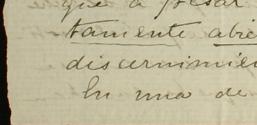 que a pesar
tamente abie
discernimien
En una de